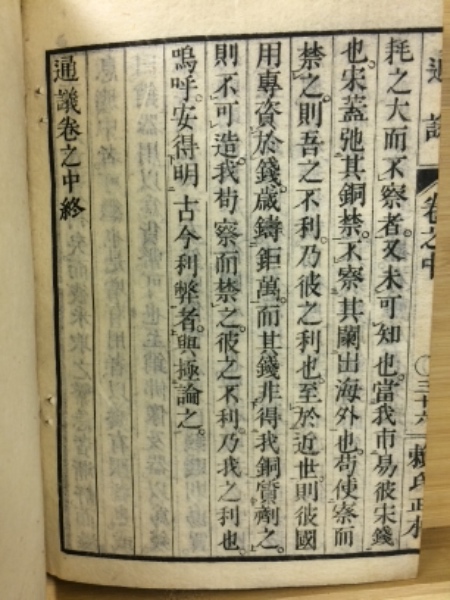 耗之大而不察者又未可知也當我市易彼宋錢
也宋蓋弛其銅禁不察其闌出海外也苟使察而
禁之則吾之不利乃彼之利也至於近世則彼國
用專資於錢歲鑄鉅萬而其錢非得我銅質劑之
則不可造我苟察而禁之彼之不利乃我之利也
嗚呼安得明古今利弊者與極論之
通議卷之中終
通議
卷之中
三十六
賴氏正本